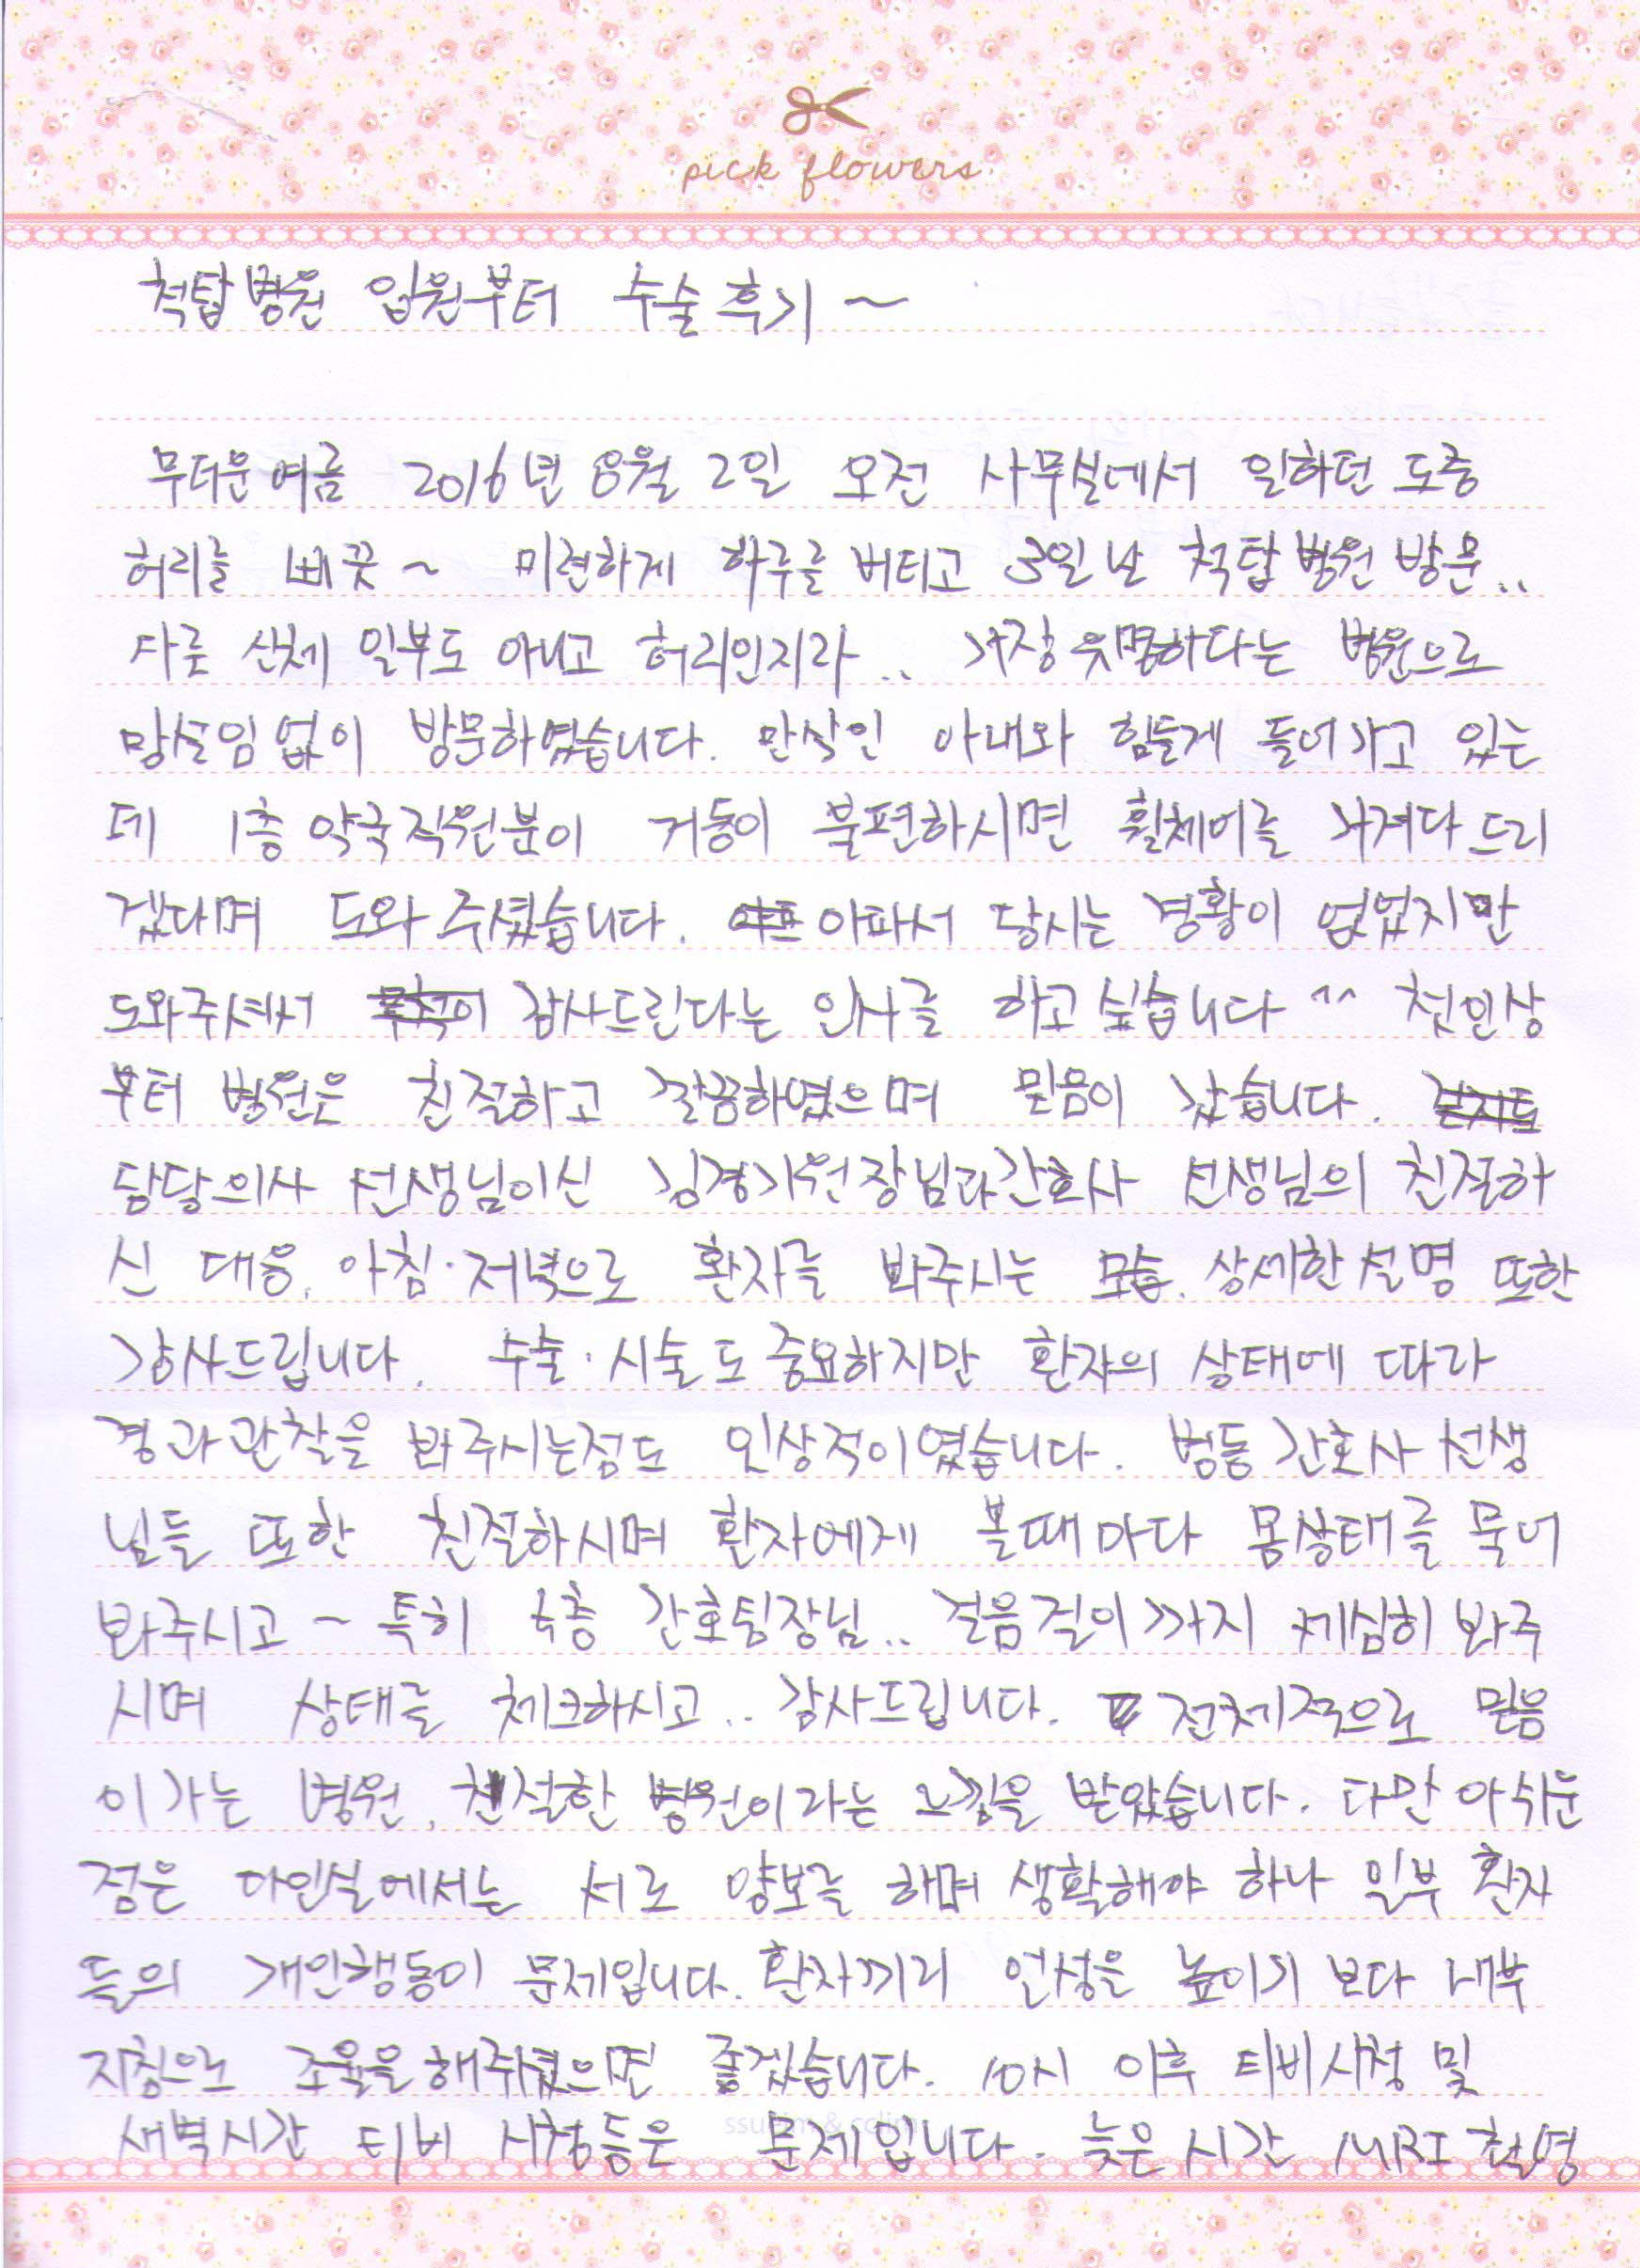 pick flowers
척탑병원 입원부터 수술후기 ~
무더운여름 2016년 8월 2일 오전 사무실에서 일하던 도중
허리를 삐끗 ~ 미련하게 하루를 버티고 3일날 척탑병원 방문..
다른 신체 일부도 아니고 허리인지라.. 가장 유명하다는 병원으로
망설임없이 방문하였습니다. 만삭인 아내와 힘들게 들어가고 있는
데 1층 약국직원분이 거동이 불편하시면 휠체어를 가져다 드리
겠다며 도와 주셨습니다. 아파서 당시는 경황이 없었지만
도와주셔서 감사드린다는 인사를 하고 싶습니다 ^^ 첫인상
부터 병원은 친절하고 깔끔하였으며 믿음이 갔습니다.
담당의사 선생님이신 김경기원장님과간호사 선생님의 친절하
신 대응, 아침·저녁으로 환자를 봐주시는 모습, 상세한 설명 또한
감사드립니다. 수술·시술도 중요하지만 환자의 상태에 따라
경과관찰을 봐주시는점도 인상적이였습니다. 병동 간호사 선생
님들 또한 친절하시며 환자에게 볼때마다 몸상태를 묻너
봐주시고 ~ 특히 5층 간호팀장님.. 걸음걸이까지 세심히 봐주
시며 상태를 체크하시고.. 감사드립니다. 전체적으로 믿음
이 가는 병원, 친절한 병원이라는 느낌을 받았습니다. 다만 아쉬운
점은 다인실에서는 서로 양보를 하며 생활해야 하나 일부 환자
들의 개인행동이 문제입니다. 환자끼리 언성을 높이기 보다 내부
지침으로 조율을해줘으면 좋겠습니다. 10시 이후 티비시청 및
새벽시간 티비 시청등은 문제입니다. 늦은 시간 MRI 촬영